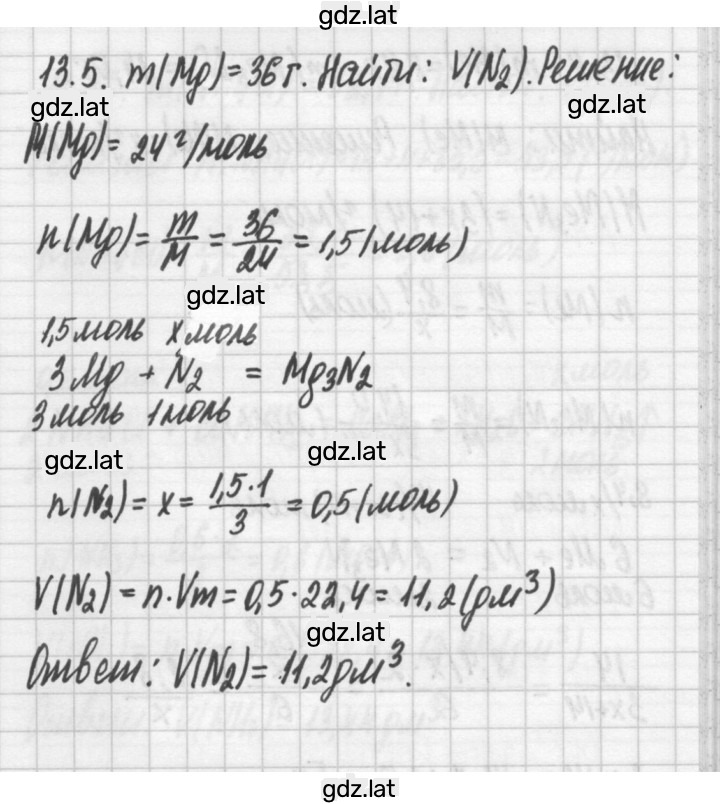 gdz.lat
13.5. m(Mg)=36г. Найти: V(N₂). Решение:
gdz.lat gdz.lat
M(Mg)= 24 г/моль
n(Mg)= m/M = 36/24 = 1,5(моль)
gdz.lat
1,5 моль x моль
3Mg + N₂ = Mg₃N₂
3 моль 1 моль
gdz.lat gdz.lat
n(N₂)= x = 1,5·1/3 = 0,5(моль)
V(N₂) = n·Vm = 0,5·22,4 = 11,2(дм³)
gdz.lat
Ответ: V(N₂)= 11,2дм³.
gdz.lat